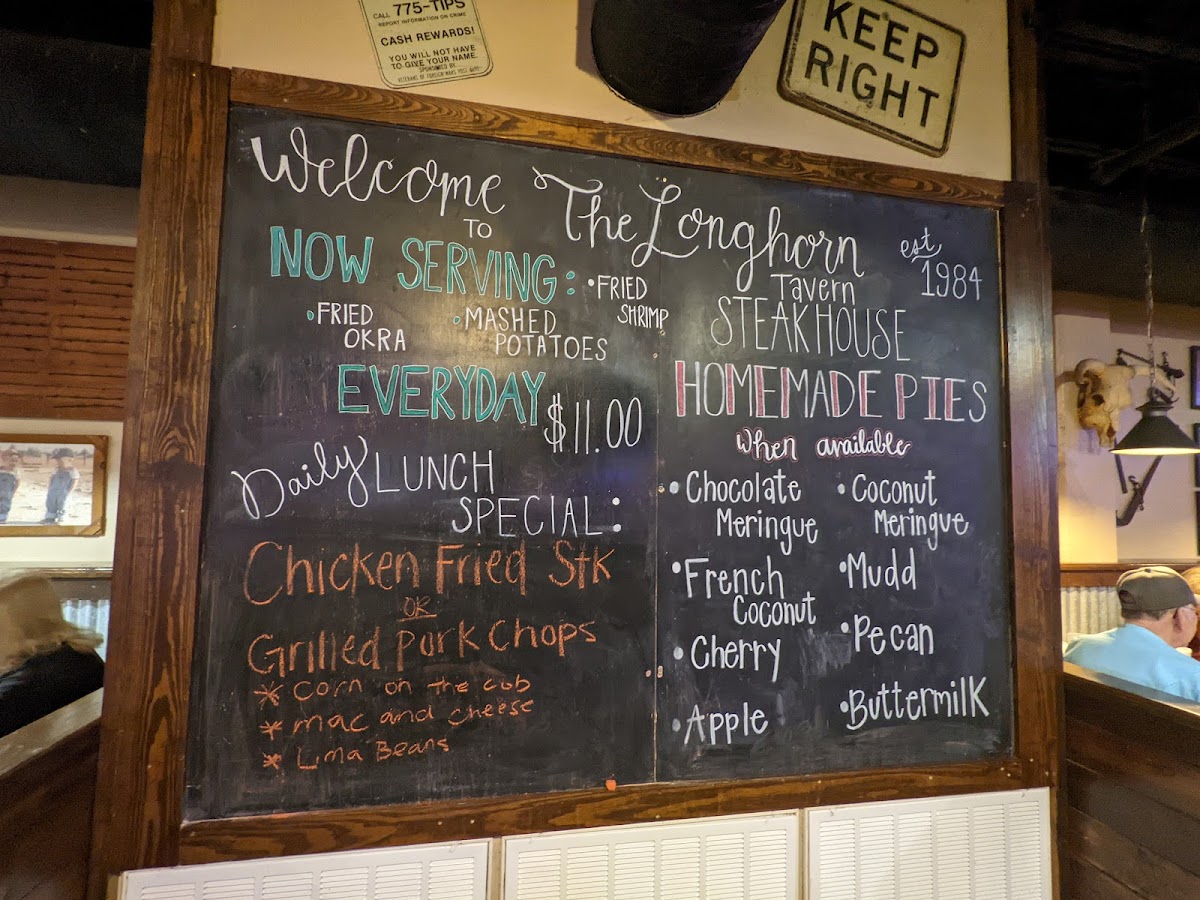 CALL 775-TIPS
REPORT INFORMATION ON CRIME
CASH REWARDS!
YOU WILL NOT HAVE
TO GIVE YOUR NAME.
SPONSORED BY
VETERANS OF FOREIGN WARS POST
KEEP
RIGHT
Welcome
TO
The Longhorn
Tavern
STEAKHOUSE
est.
1984
NOW SERVING:
•FRIED
SHRIMP
•FRIED
OKRA
•MASHED
POTATOES
EVERYDAY
$11.00
Daily LUNCH
SPECIAL:
Chicken Fried Stk
OR
Grilled Pork Chops
* Corn on the cob
* mac and cheese
* Lima Beans
HOMEMADE PIES
when available
•Chocolate
Meringue
•French
Coconut
•Cherry
•Apple
•Coconut
Meringue
•Mudd
•Pecan
•Buttermilk